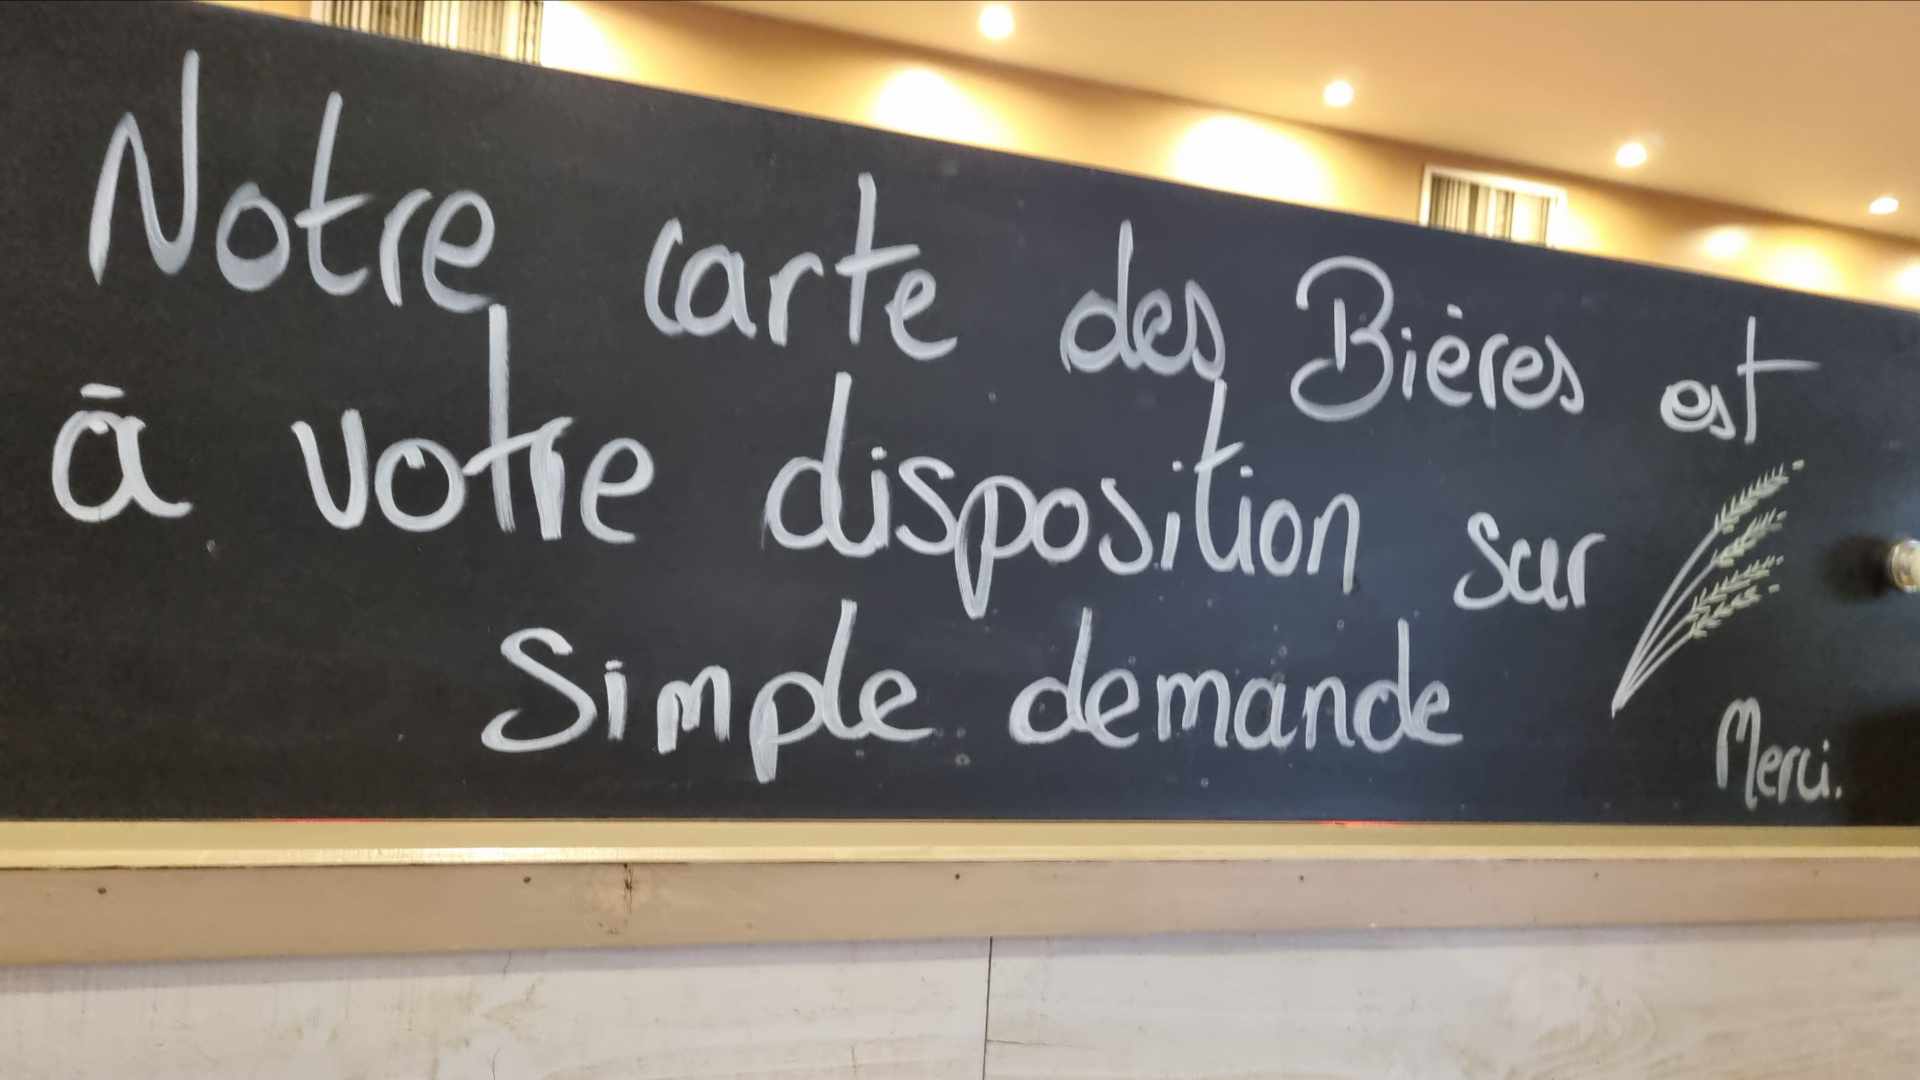 Notre carte des Bières est
à votre disposition sur
Simple demande
Merci.